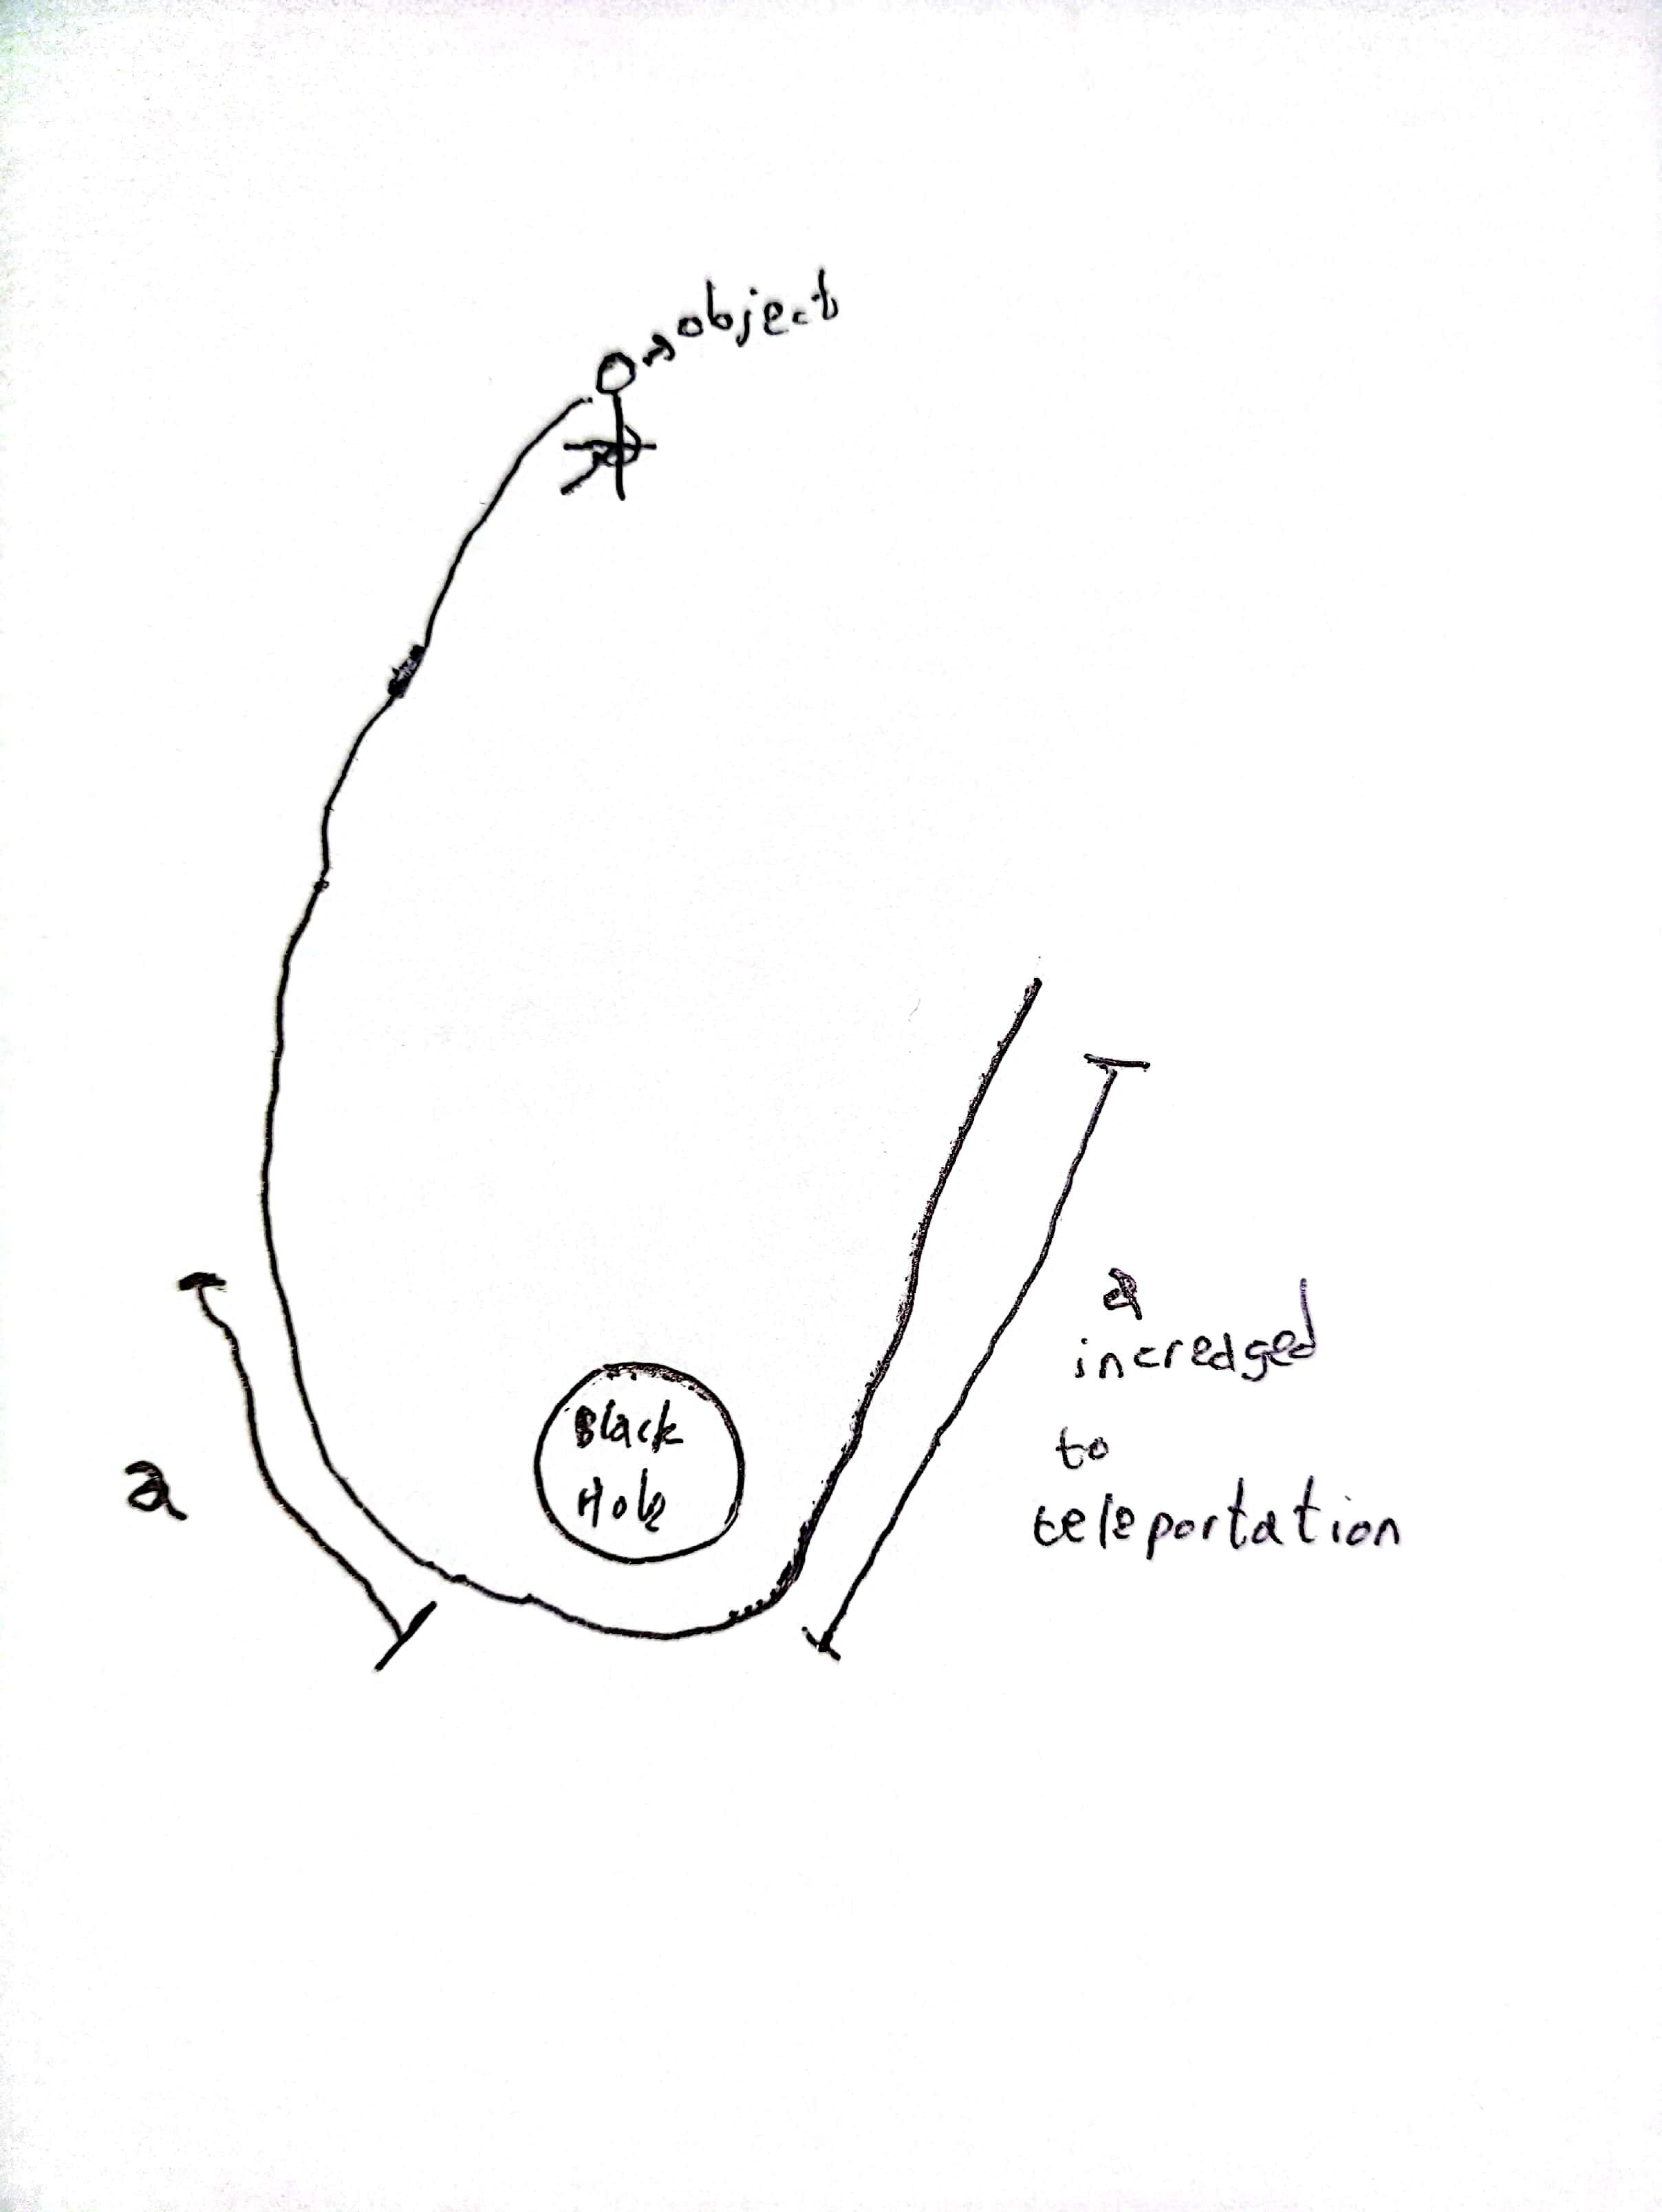 object
Black
Hole
a
a
increased
to
teleportation